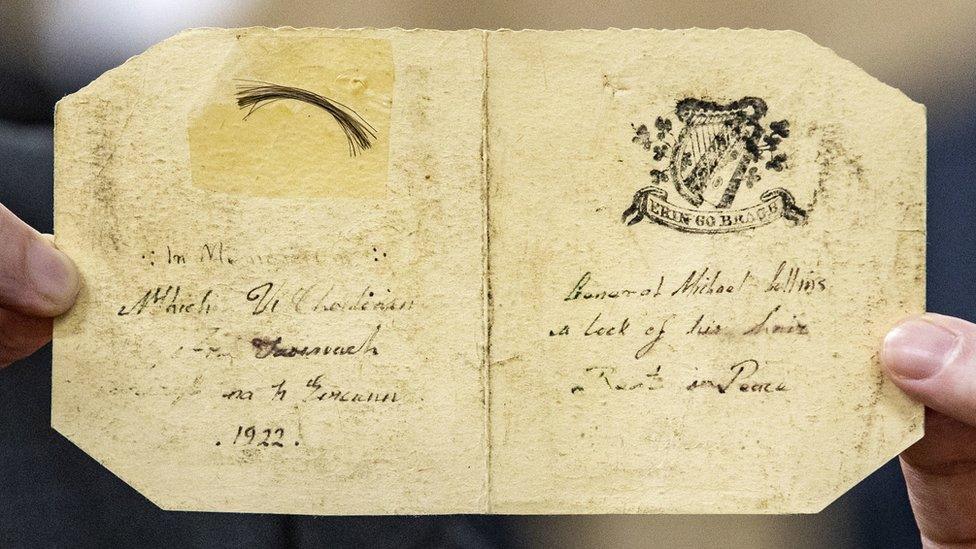 ∴ In Memoriam ∴
Mhichil Ui Choileain
na h Eireann
. 1922 .
ERIN GO BRAGH
General Michael Collins
a lock of his hair
Rest in Peace